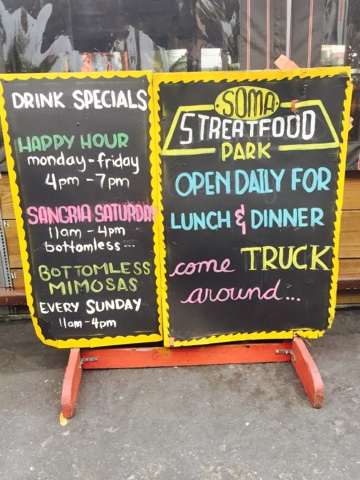 DRINK SPECIALS
HAPPY HOUR
monday-friday
4pm - 7pm
SANGRIA SATURDAY
11am - 4pm
bottomless...
BOTTOMLESS
MIMOSAS
EVERY SUNDAY
11am-4pm
SOMA
STREATFOOD
PARK
OPEN DAILY FOR
LUNCH & DINNER
come TRUCK
around...